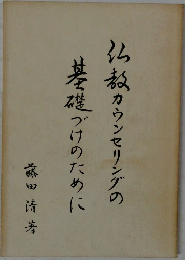 仏教カウンセリングの
基礎づけのために
藤田清著